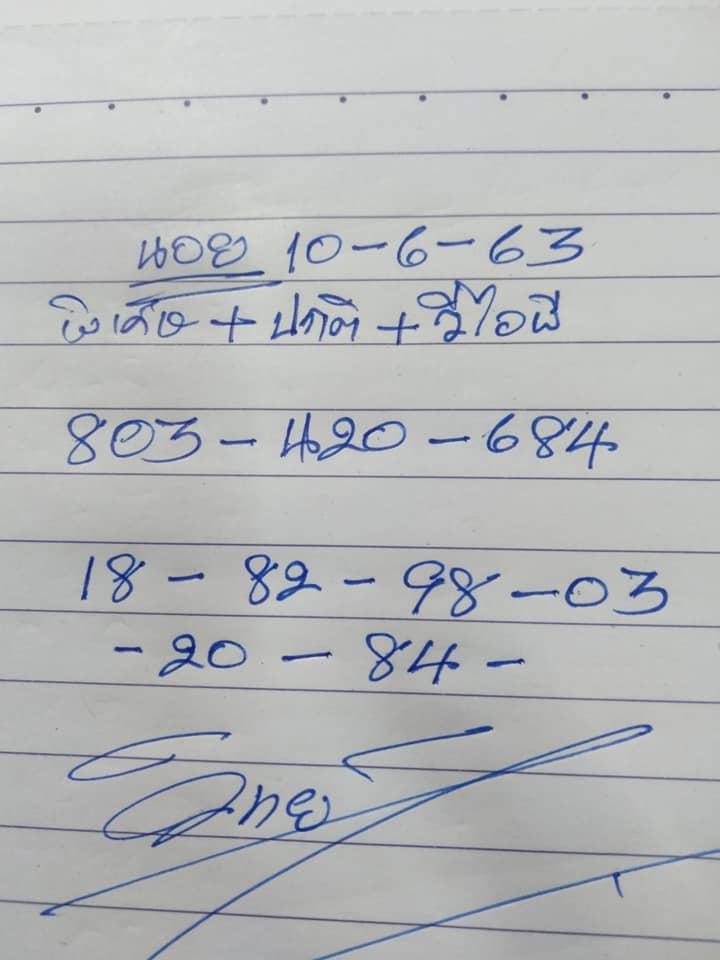 นอย 10-6-63
พิเศษ + ปกติ + วีไอพี
803 - 420 - 684
18 - 82 - 98 - 03
- 20 - 84 -